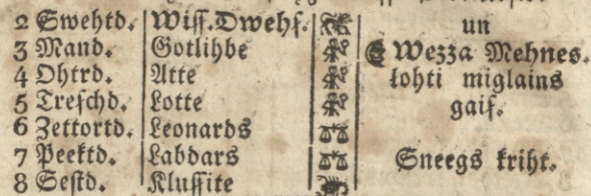 2 Swehtd. Wiſſ. Dwehſ. un
3 Mand. Gotlihbe Wezza Mehnes.
4 Ohtrd. Atte ƚohti miglains
5 Treſchd. Lotte gaiſ.
6 Zettortd. Leonards
7 Peektd. Labdars Sneegs kriht.
8 Seſtd. Kluſſite